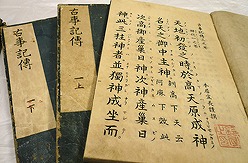 本居宣長謹撰
天地初發之時於高天原成神
名天之御中主神訓高下天云阿麻下效此
次高御産巣日神次神産巣日
神此三柱神者並獨神成坐而
古事記傳
一上
古事記傳
一下